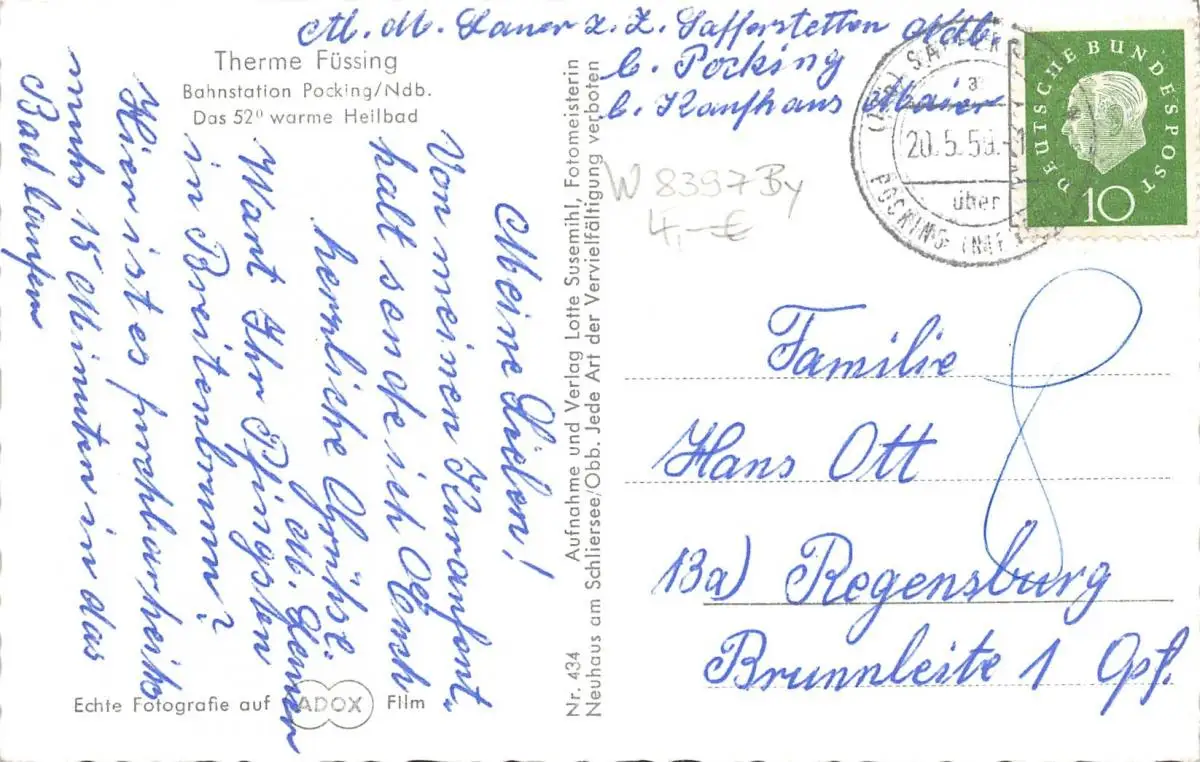 M. M. Lauer z. Z. Safferstetten Ndb.
b. Pocking
b. Kaufhaus Maier
Therme Füssing
Bahnstation Pocking/Ndb.
Das 52° warme Heilbad
Meine Lieben!
Von meinen Kuraufent-
halt sende ich Euch
herzliche Grüße.
Wart Ihr Pfingsten
in Breitenbrunn?
Hier ist es furchtbar heiß
muß 15 Minuten in das
Bad laufen
Echte Fotografie auf ADOX Film
Nr. 434 Aufnahme und Verlag Lotte Susemihl, Fotomeisterin
Neuhaus am Schliersee/Obb. Jede Art der Vervielfältigung verboten
W 8397 By
4,-€
20.5.59.-1
a
über
POCKING
DEUTSCHE BUNDESPOST
10
Familie
Hans Ott
13a) Regensburg
Brunnleite 1
8